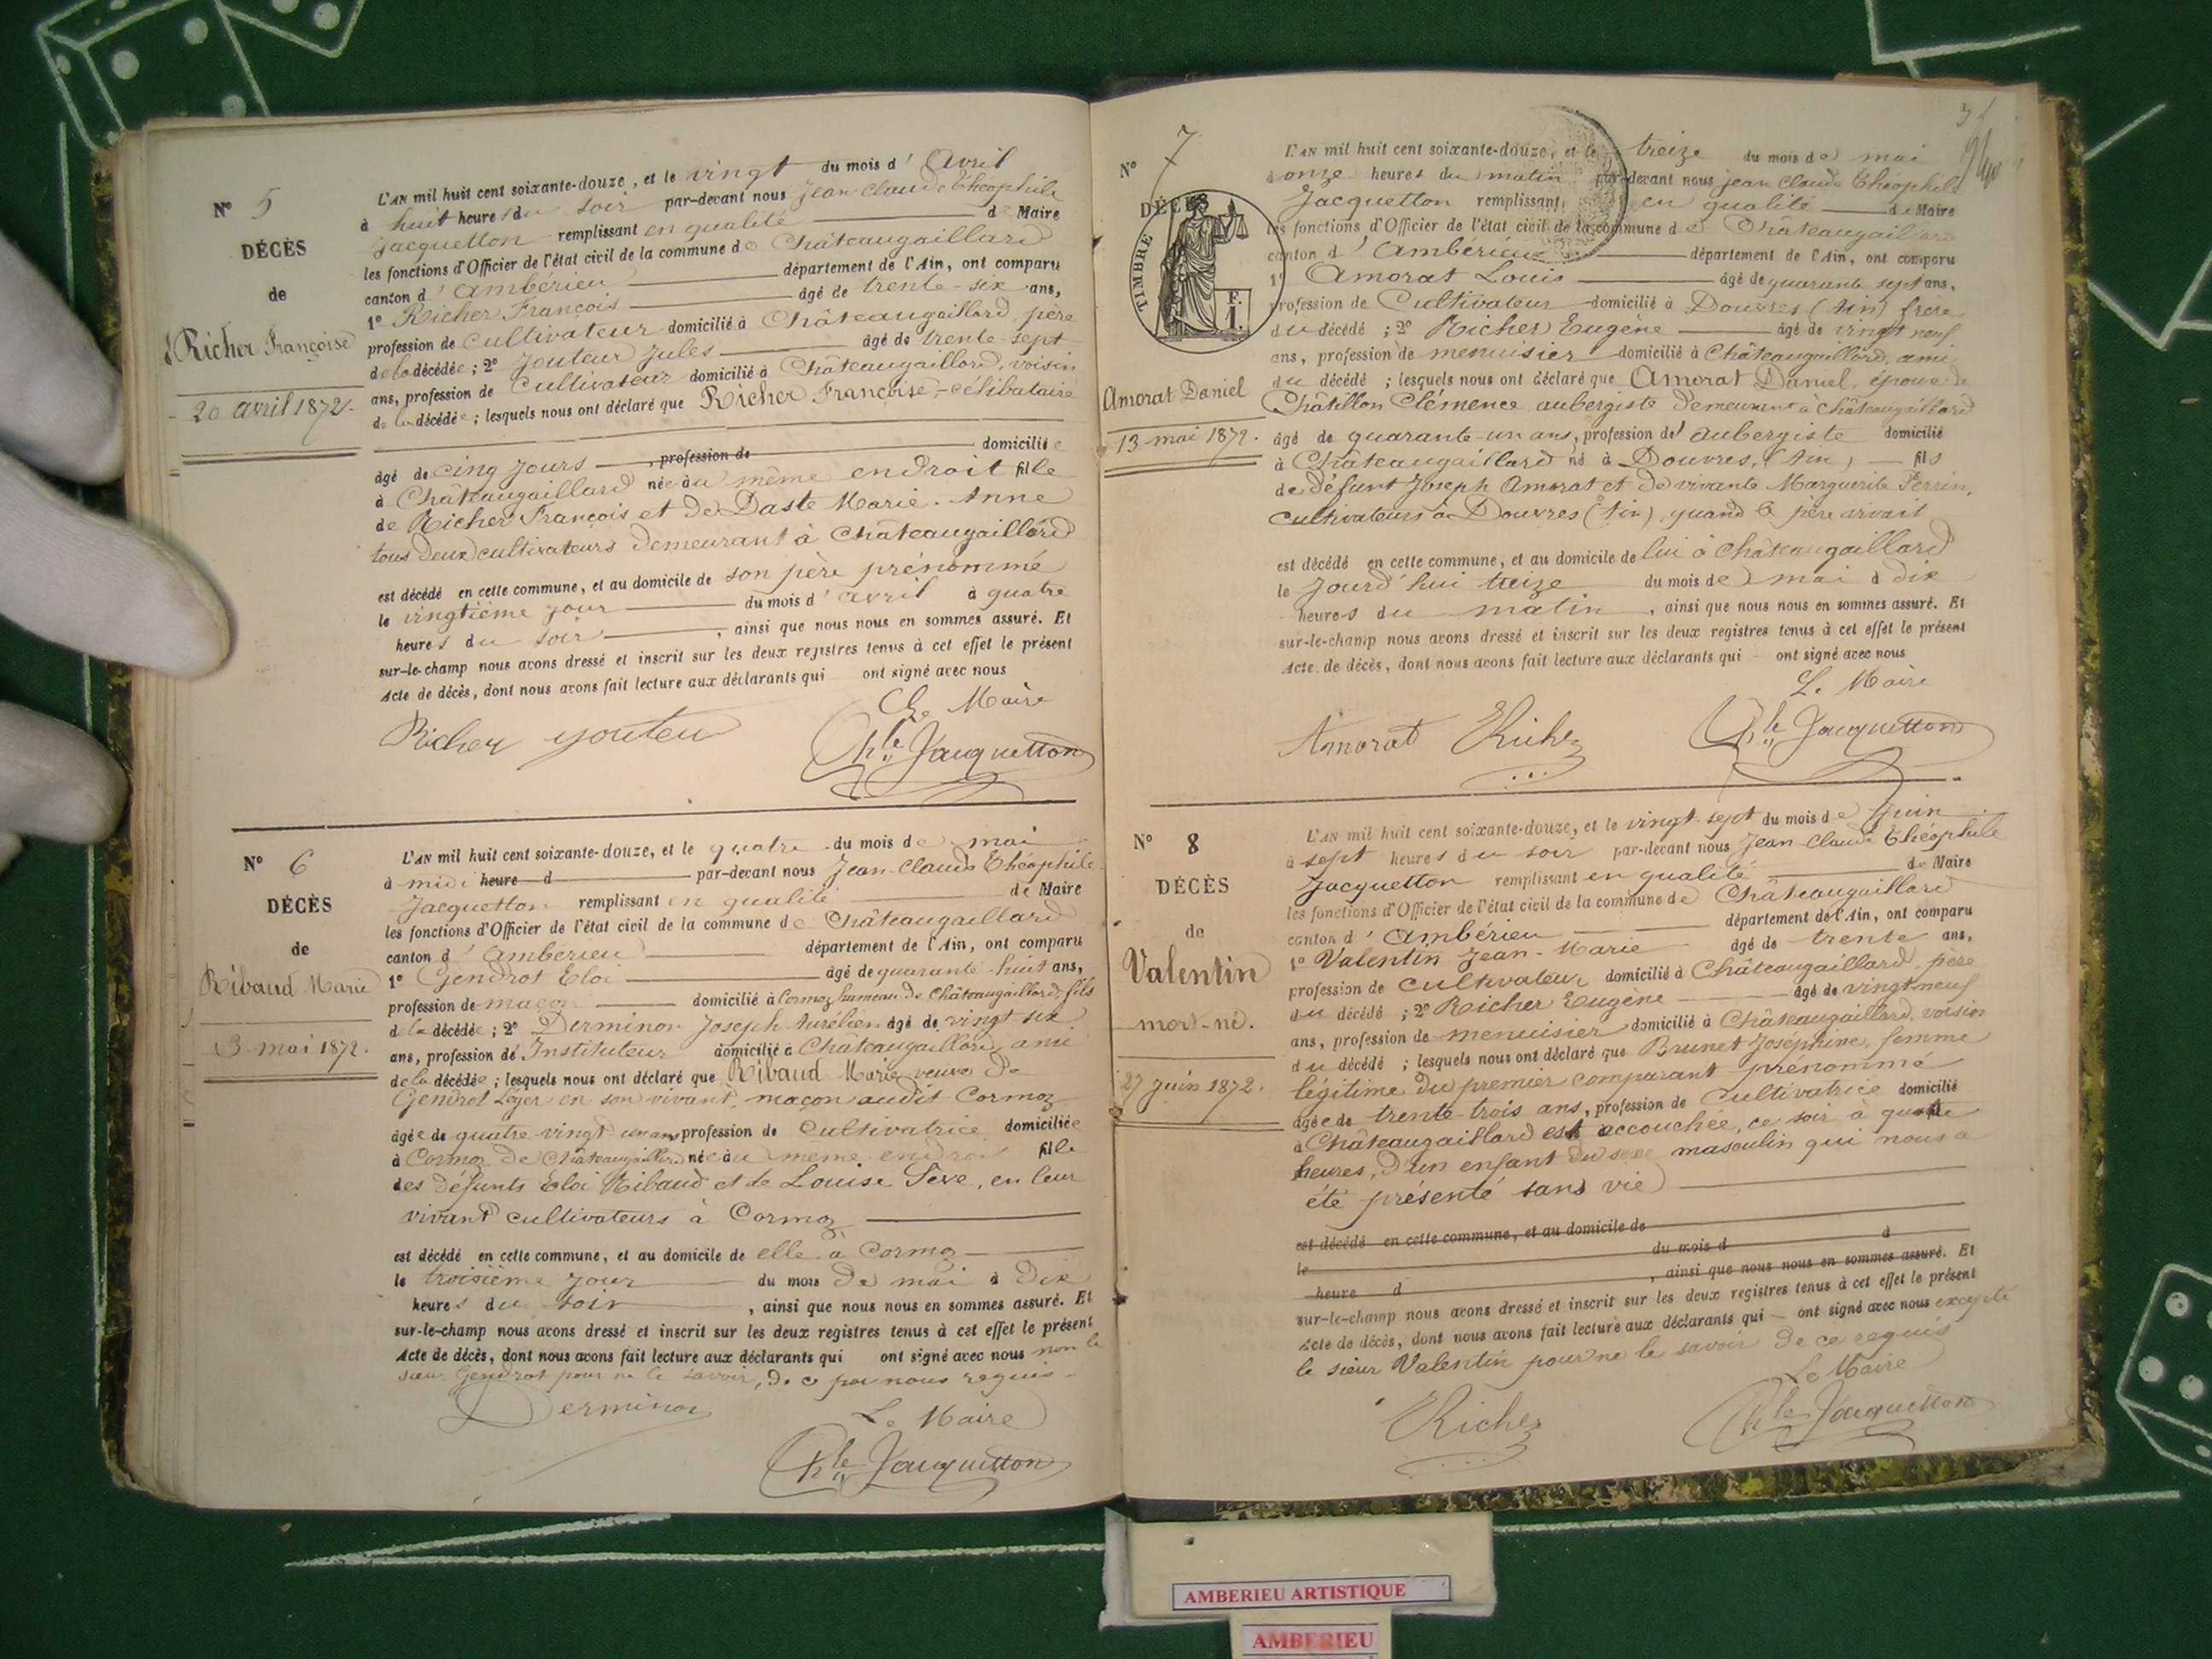 N° 5
DÉCÈS
de
Richer Françoise
20 avril 1872.
L'AN mil huit cent soixante-douze, et le vingt du mois d' Avril
à huit heures du soir par-devant nous Jean Claude Théophile
Jacquetton remplissant en qualité de Maire
les fonctions d'Officier de l'état civil de la commune de Châteaugaillard
canton d' Ambérieu département de l'Ain, ont comparu
1° Richer François âgé de trente-six ans,
profession de Cultivateur domicilié à Châteaugaillard, père
de la décédée ; 2° Jouteur Jules âgé de trente-sept
ans, profession de Cultivateur domicilié à Châteaugaillard, voisin
de la décédée ; lesquels nous ont déclaré que Richer Françoise, célibataire
âgé de cinq jours , profession de domiciliée
à Châteaugaillard née au même endroit fille
de Richer François et de Daste Marie-Anne
tous deux cultivateurs demeurant à Châteaugaillard
est décédé en cette commune, et au domicile de son père prénommé
le vingtième jour du mois d' avril à quatre
heures du soir , ainsi que nous nous en sommes assuré. Et
sur-le-champ nous avons dressé et inscrit sur les deux registres tenus à cet effet le présent
Acte de décès, dont nous avons fait lecture aux déclarants qui ont signé avec nous
Le Maire
Richer Jouteu Phle Jacquetton
N° 6
DÉCÈS
de
Ribaud Marie
3 mai 1872.
L'AN mil huit cent soixante-douze, et le quatre du mois de mai
à midi heure d par-devant nous Jean-Claude Théophile
Jacquetton remplissant en qualité de Maire
les fonctions d'Officier de l'état civil de la commune de Châteaugaillard
canton d' Ambérieu département de l'Ain, ont comparu
1° Gendrot Eloi âgé de quarante-huit ans,
profession de maçon domicilié à Cormoz hameau de Châteaugaillard, fils
de la décédée ; 2° Derminon Joseph Aurélien âgé de vingt-six
ans, profession d' Instituteur domicilié à Châteaugaillard, ami
de la décédée ; lesquels nous ont déclaré que Ribaud Marie veuve de
Gendrot Léger en son vivant, maçon audit Cormoz
âgée de quatre-vingt-un ans profession de Cultivatrice domiciliée
à Cormoz de Châteaugaillard née au même endroit fille
des défunts Eloi Ribaud et de Louise Sève, en leur
vivant cultivateurs à Cormoz
est décédé en cette commune, et au domicile de elle à Cormoz
le troisième jour du mois de mai à dix
heures du soir , ainsi que nous nous en sommes assuré. Et
sur-le-champ nous avons dressé et inscrit sur les deux registres tenus à cet effet le présent
Acte de décès, dont nous avons fait lecture aux déclarants qui ont signé avec nous non le
sieur Gendrot pour ne le savoir, de ce par nous requis
Derminon Le Maire
Phle Jacquetton
N° 7
DÉCÈS
TIMBRE
F. I.
Amorat Daniel
13 mai 1872.
L'AN mil huit cent soixante-douze, et le treize du mois de mai
à onze heures du matin par-devant nous Jean Claude Théophile
Jacquetton remplissant en qualité de Maire
les fonctions d'Officier de l'état civil de la commune de Châteaugaillard
canton d' Ambérieu département de l'Ain, ont comparu
1° Amorat Louis âgé de quarante sept ans,
profession de Cultivateur domicilié à Douvres (Ain) frère
du décédé ; 2° Richer Eugène âgé de vingt neuf
ans, profession de menuisier domicilié à Châteaugaillard, ami
du décédé ; lesquels nous ont déclaré que Amorat Daniel, époux de
Châtillon Clémence, aubergiste demeurant à Châteaugaillard
âgé de quarante-un ans, profession d' aubergiste domicilié
à Châteaugaillard né à Douvres, (Ain) fils
de défunt Joseph Amorat et de vivante Marguerite Perrin,
cultivateurs à Douvres (Ain), quand le père vivait
est décédé en cette commune, et au domicile de lui à Châteaugaillard
le jourd'hui treize du mois de mai à dix
heures du matin , ainsi que nous nous en sommes assuré. Et
sur-le-champ nous avons dressé et inscrit sur les deux registres tenus à cet effet le présent
Acte de décès, dont nous avons fait lecture aux déclarants qui ont signé avec nous
Le Maire
Amorat ERicher Phle Jacquetton
N° 8
DÉCÈS
de
Valentin
mort-né.
27 juin 1872.
L'AN mil huit cent soixante-douze, et le vingt-sept du mois de Juin
à sept heures du soir par-devant nous Jean-Claude Théophile
Jacquetton remplissant en qualité de Maire
les fonctions d'Officier de l'état civil de la commune de Châteaugaillard
canton d' Ambérieu département de l'Ain, ont comparu
1° Valentin Jean-Marie âgé de trente ans,
profession de Cultivateur domicilié à Châteaugaillard, père
du décédé ; 2° Richer Eugène âgé de vingt neuf
ans, profession de menuisier domicilié à Châteaugaillard, voisin
du décédé ; lesquels nous ont déclaré que Brunet Joséphine, femme
légitime du premier comparant prénommé
âgée de trente-trois ans, profession de Cultivatrice domicilié
à Châteaugaillard est accouchée, ce soir à quatre
heures, d'un enfant du sexe masculin qui nous a
été présenté sans vie
est décédé en cette commune, et au domicile de
le du mois d à
heure d , ainsi que nous nous en sommes assuré. Et
sur-le-champ nous avons dressé et inscrit sur les deux registres tenus à cet effet le présent
Acte de décès, dont nous avons fait lecture aux déclarants qui ont signé avec nous excepté
le sieur Valentin pour ne le savoir de ce requis
Le Maire
ERicher Phle Jacquetton
AMBERIEU ARTISTIQUE
AMBERIEU